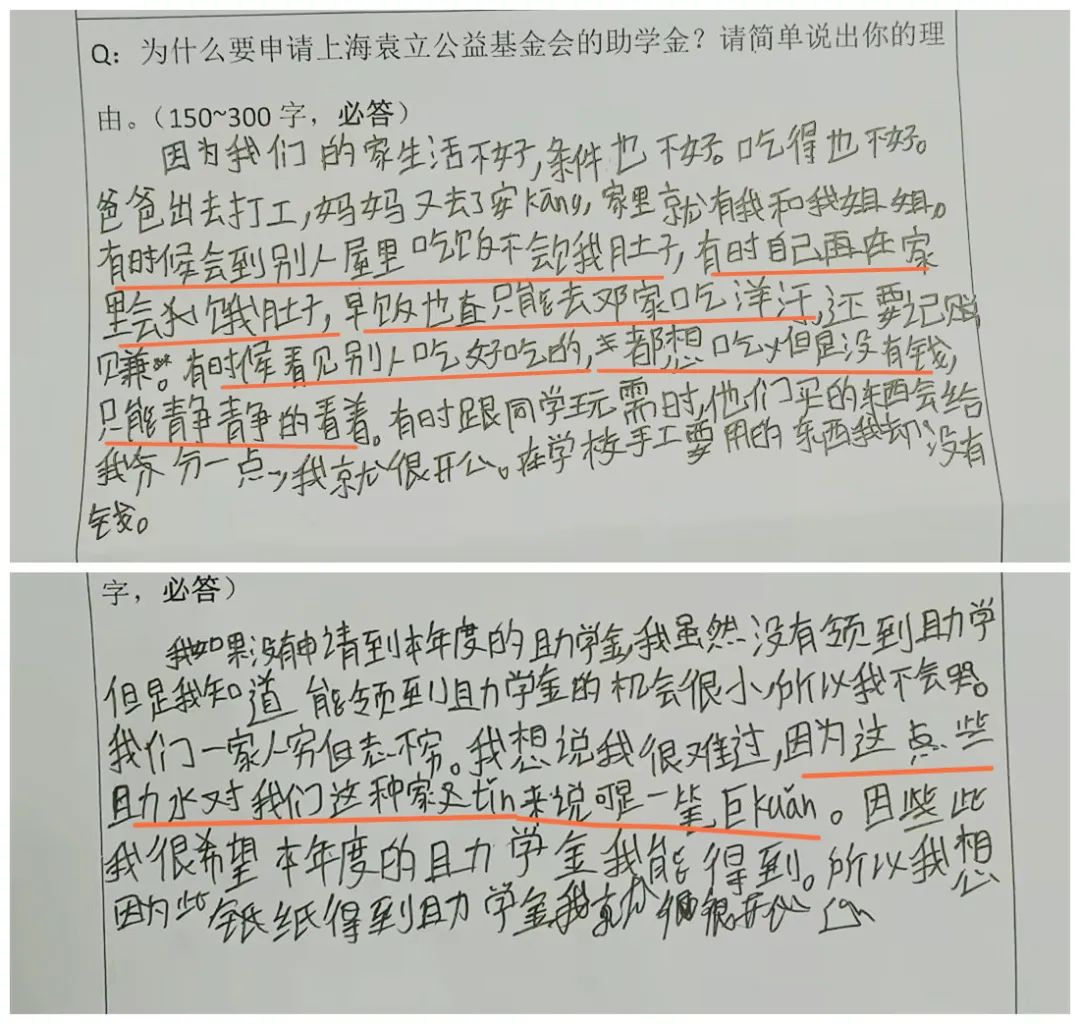 Q：为什么要申请上海袁立公益基金会的助学金？请简单说出你的理
由。（150~300 字，必答）
因为我们的家生活不好,条件也不好。吃得也不好。
爸爸出去打工,妈妈又去了安kāng,家里就有我和我姐姐。
有时候会到别人屋里吃饭不会饿我肚子,有时自己再在家
里会饿我肚子,早饭也直只能去邓家吃洋汗,还要记账
有时候看见别人吃好吃的,都想吃,但是没有钱,
只能青争青争的看着。有时跟同学玩需时,他们买的东西会给
我分一点,我就很开心。在学校手工要用的东西我却没有
钱。
字，必答）
我如果没有申请到本年度的助学金,我虽然没有领到助学
但是我知道 能领到助学金的机会很小,所以我不会哭。
我们一家人穷但志不穷。我想说我很难过,因为这点些
助力水对我们这种家又tín来说可是一笔巨kuǎn。因些些
我很希望本年度的助学金我能得到。所以我想
因为些 纸得到助学金我就很开心